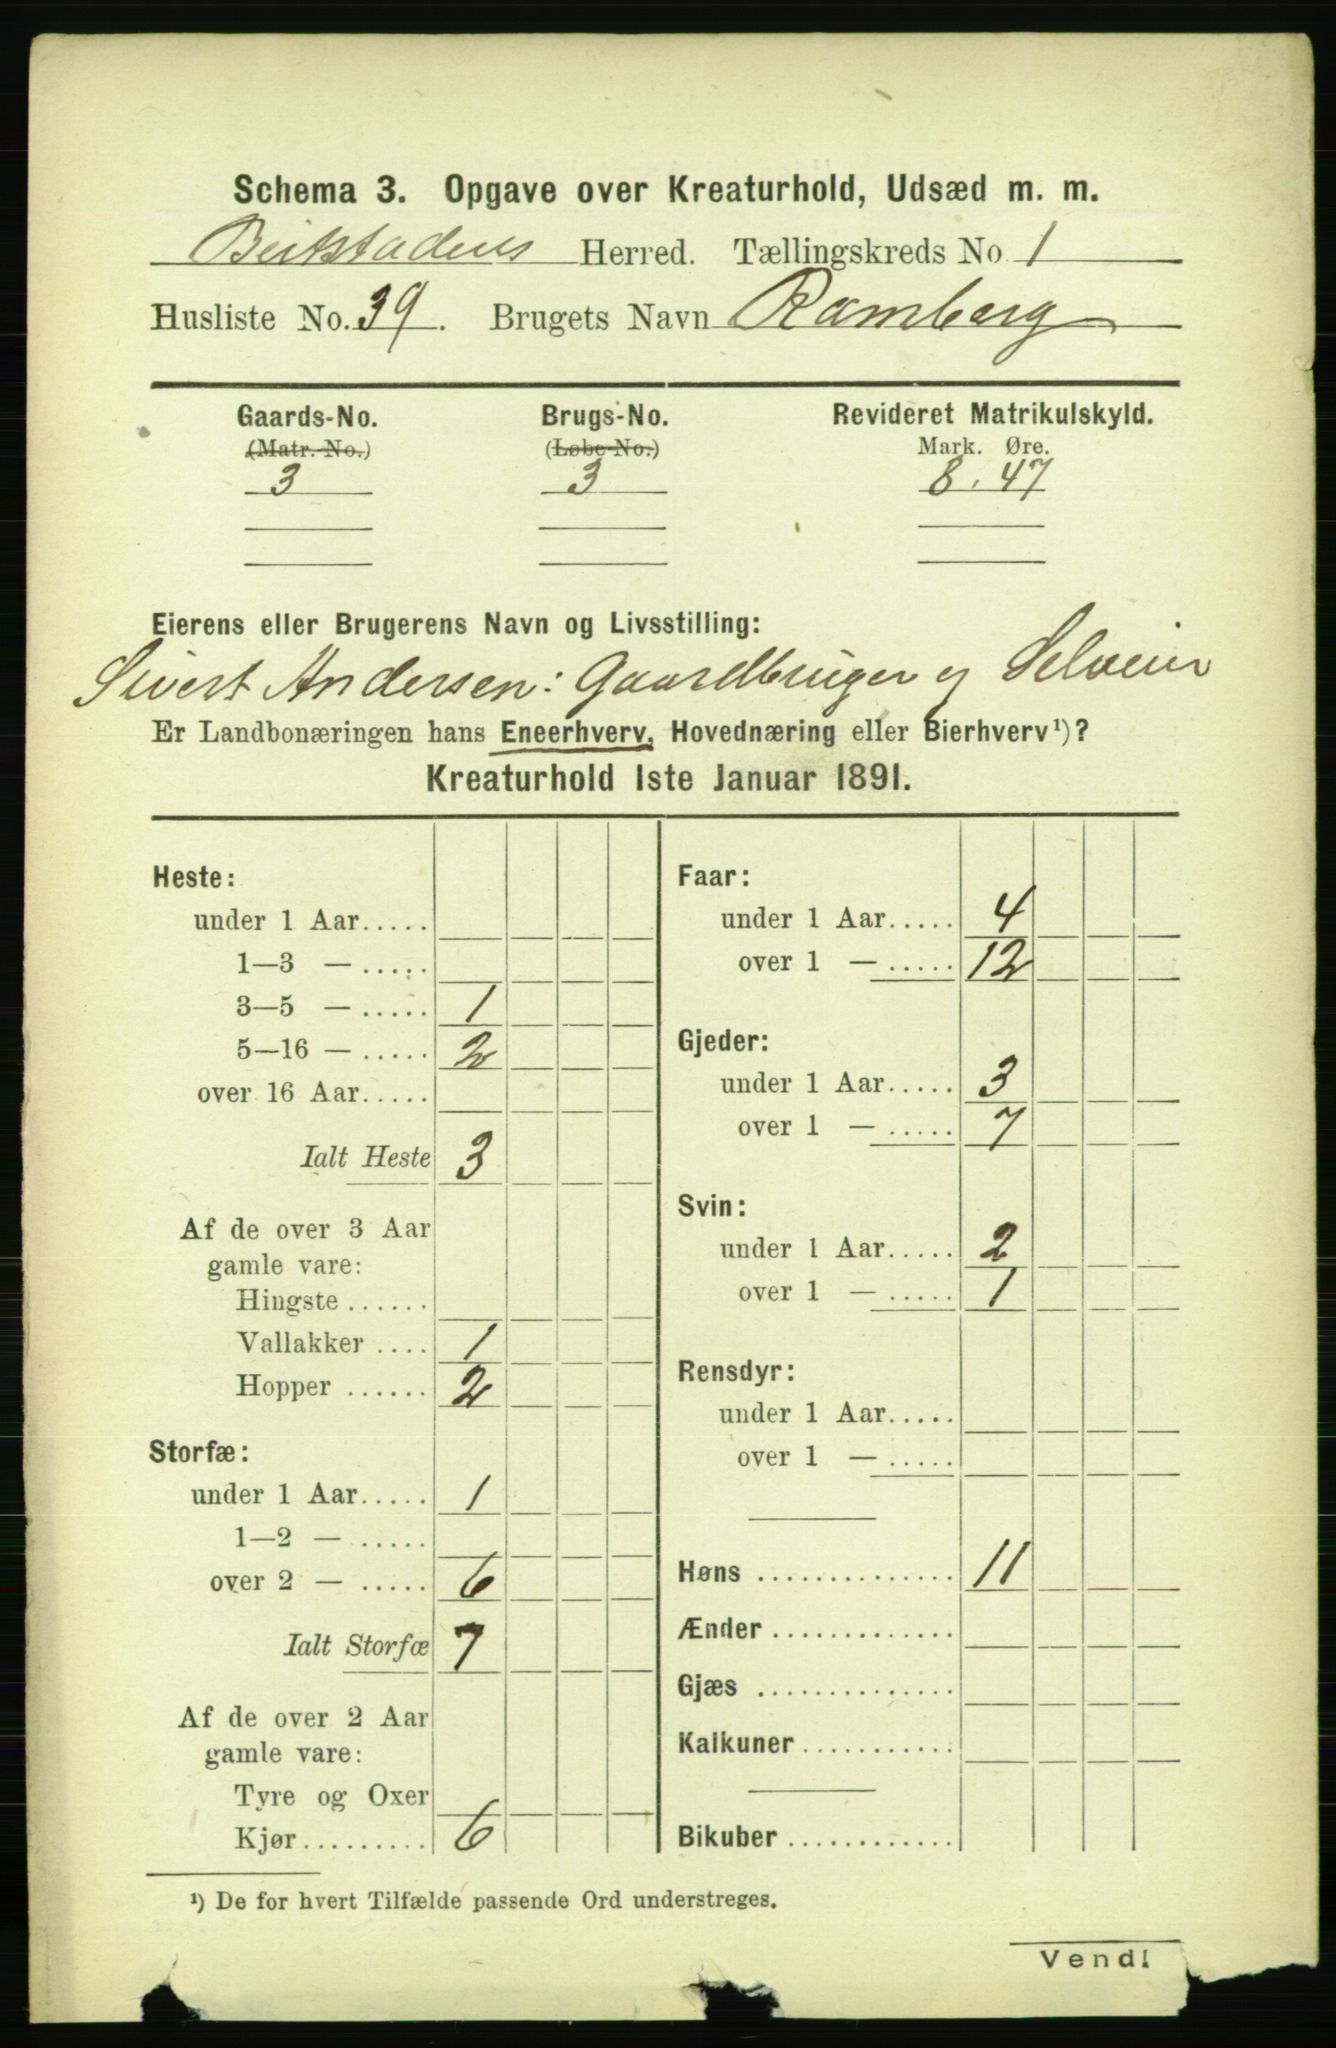 Schema 3. Opgave over Kreaturhold, Udsæd m. m.
Beitstadens Herred. Tællingskreds No. 1
Husliste No. 39. Brugets Navn Ramberg
Gaards-No. Brugs-No. Revideret Matrikulskyld.
(Matr.-No.) (Løbe-No.) Mark. Øre.
3 3 8. 47
Eierens eller Brugerens Navn og Livsstilling:
Sivert Andersen: Gaardbruger og Selveier
Er Landbonæringen hans Eneerhverv, Hovednæring eller Bierhverv¹)?
Kreaturhold 1ste Januar 1891.
Heste:
under 1 Aar.....
1—3 — .....
3—5 — ..... 1
5—16 — ..... 2
over 16 Aar.....
Ialt Heste 3
Af de over 3 Aar
gamle vare:
Hingste ......
Vallakker .... 1
Hopper ...... 2
Storfæ:
under 1 Aar..... 1
1—2 — .....
over 2 — ..... 6
Ialt Storfæ 7
Af de over 2 Aar
gamle vare:
Tyre og Oxer
Kjør......... 6
Faar:
under 1 Aar..... 4
over 1 — ..... 12
Gjeder:
under 1 Aar..... 3
over 1 — ..... 7
Svin:
under 1 Aar..... 2
over 1 — ..... 1
Rensdyr:
under 1 Aar.....
over 1 — .....
Høns .............. 11
Ænder .............
Gjæs ..............
Kalkuner ...........
Bikuber ............
¹) De for hvert Tilfælde passende Ord understreges.
Vend!